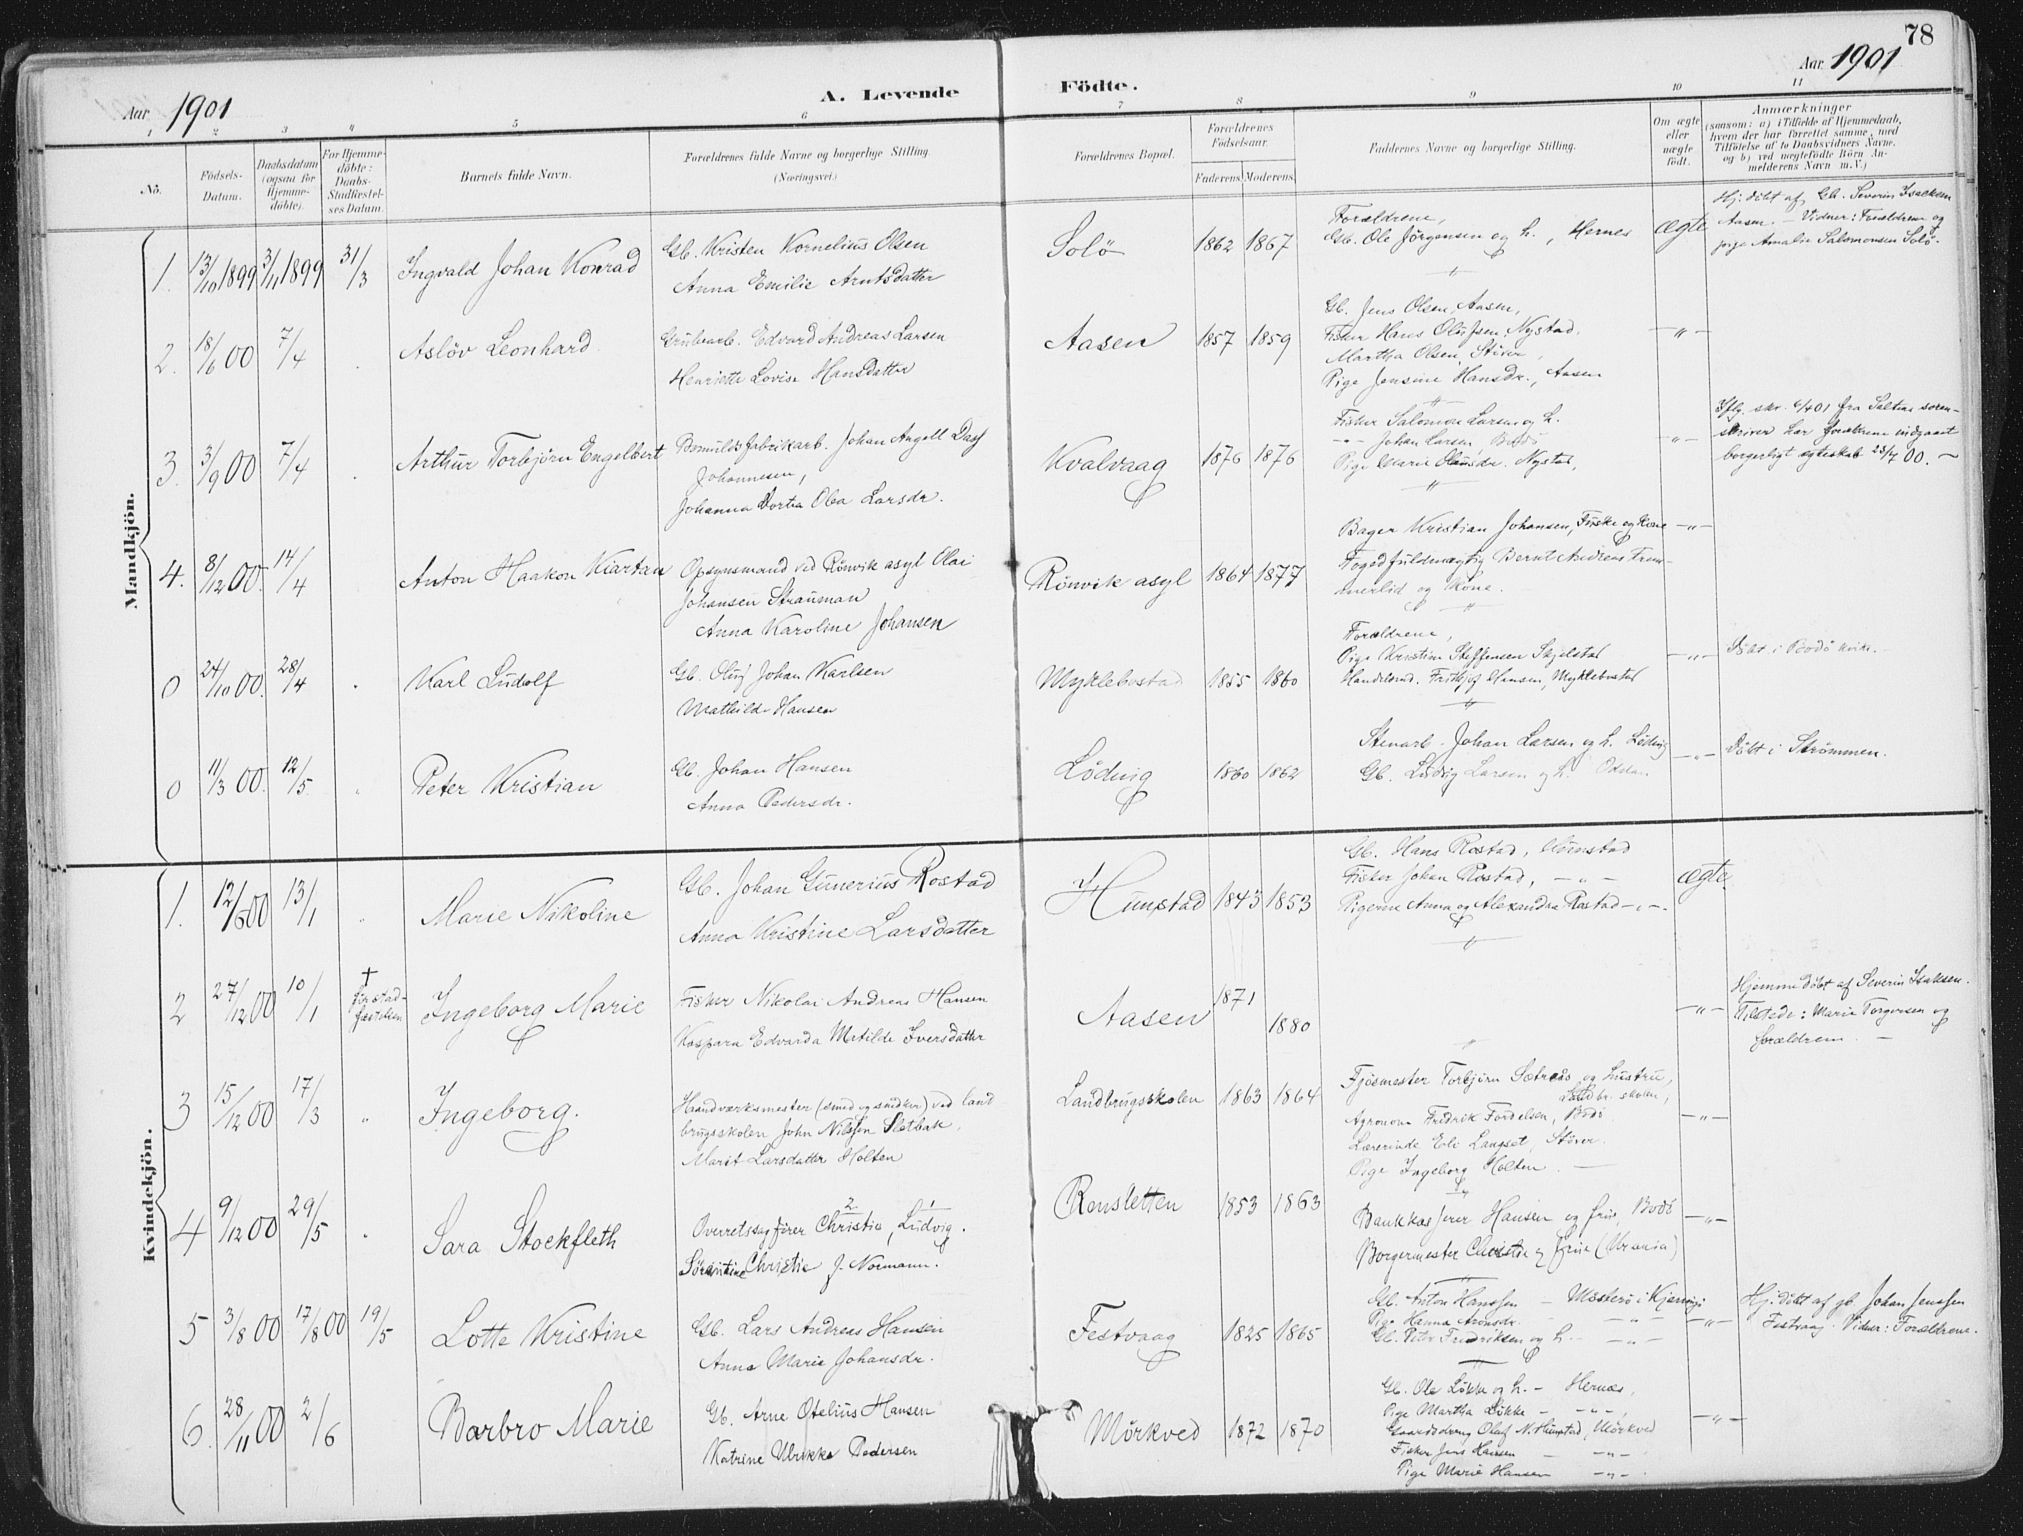 78
Aar 1901
A. Levende
Födte.
Aar 1901
1 2 3 4 5 6 7 8 9 10 11
No.
Födsels-Datum.
Daabsdatum (ogsaa for Hjemme-döbte).
For Hjemme-döbte: Daabs-Stadfæstel-ses Datum.
Barnets fulde Navn.
Forældrenes fulde Navne og borgerlige Stilling. (Næringsvei.)
Forældrenes Bopæl.
Forældrenes Födselsaar.
Faderens. Moderens.
Faddernes Navne og borgerlige Stilling.
Om ægte eller uægte födt.
Anmærkninger
(saasom: a) i Tilfælde af Hjemmedaab, hvem der har forrettet samme, med Tilföielse af to Daabsvidners Navne. og b) ved uægtefödte Börn An-melderens Navn m. V.)
Mandkjön.
1. 13/10 1899 3/11 1899 31/3 Ingvald Johan Konrad
Gb. Kristen Kornelius Olsen
Anna Emilie Arntsdatter
Solö 1862 1867
Forældrene,
Gb. Ole Jörgensen og h., Hernes
ægte
Hj. döbt af Gb. Severin Isaksen
Aasen. – Vidner: Forældrene og
pige Amalie Salomonsen Solö.
2. 18/6 00 7/4 Aslöv Leonhard
Grubearb. Edvard Andreas Larsen
Henriette Lovise Hansdatter
Aasen 1857 1859
Gb. Jens Olsen, Aasen,
Fisker Hans Olufsen, Nystad.
Martha Olsen, Stöver,
Pige Jensine Hansdr., Aasen
–„–
3. 3/9 00 7/4 Arthur Torbjörn Engelbert
Bomuldsfabrikarb. Johan Angell Dass
Johannesen,
Johanna Dortea Olea Larsdr.
Kvalvaag 1876 1876
Fisker Salomon Larsen og h.
–„– Johan Larsen Bodö
Pige Marie Hansdr. Nystad,
–„–
Iflg. skr. 6/4 01 fra Saltens soren-
skriver har forældrene indgaaet
borgerligt ægteskab 23/7 00. –
4. 8/12 00. 14/4 Anton Haakon Kiartan
Opsynsmand ved Rönvik asyl Olai
Johansen Strauman
Anna Karoline Johansen
Rönvik asyl 1864 1877
Bager Kristian Johansen, Fiske og Kone
Fogedfuldmægtig Bernt Andreas Trom-
merlid og Kone.
–„–
0 24/10 00. 28/4 Karl Ludolf
Gb. Oluf Johan Karlsen
Mathilde Hansen
Myklebostad 1855 1860
Forældrene,
Pige Kristine Steffensen Skjelstad
Handelsmd. Frithjof Hansen, Myklebostad
–„–
Döbt i Bodö kirke.–
0 11/3 00. 12/5 Peter Kristian
Gb. Johan Hansen
Anna Pedersdr.
Löding 1860 1862
Stenarb. Johan Larsen og h. Löding
Gb. Ludvig Larsen og h.
–„–
Döbt i Strömmen.
Kvindekjön.
1. 12/6 00 13/1 Marie Nikoline
Gb. Johan Gunerius Rostad
Anna Kristine Larsdatter
Hunstad 1843 1853
Gb. Hans Rostad, Hunstad
Fisker Johan Rostad, –„–
Pigerne Anna og Alexandra Rostad –„–.
ægte
2 27/12 00 10/1 † Ingeborg Marie
Fisker Nikolai Andreas Hansen
Kaspara Edvarda Matilde Iversdatter
Aasen 1871 1880
–„–
Hjemmedöbt af Severin Isaksen.
Tilstede: Marie Torgersen og
forældrene. –
3 15/12 00 17/3 „ Ingeborg.
Haandværksmester (smed og snedker) ved land
brugsskolen John Nilssen Sletbak,
Marit Larsdatter Holten
Landbrugsskolen 1863 1864
Fjösmester Torbjörn Sætreds og hustru,
Landbr. skolen,
Agronom Fredrik Fordelsen, Bodö
Lærerinde Eli Langset, Stöver.
Pige Ingeborg Holten. –
–„–
4 9/12 00 29/5 Sara Stockfleth
Overretssagförer Christie, Ludvig.
Sörentine Christie f. Normann.
Rensletten 1853 1863
Bankkasjerer Hansen og frue, Bodö
Borgermester Christie og frue (Urania)
–„–
5 3/8 00 17/8 00 19/5 Lotte Kristine
Gb. Lars Andreas Hansen
Anne Marie Johansdr.
Festvaag 1825 1865
Gb. Anton Hanssen – Mæsterö i Kjerringö
Pige Hanna Aronsdr. –„–
Gb. Peter Fredriksen og h. –„–
–„–
Hj. döbt af gb. Johan Jenssen
Festvaag. Vidner: Forældrene.
6. 28/11 00 2/6 Barbro Marie
Gb. Arne Otelius Hansen
Katrine Ulrikke Pedersen
Mörkved 1872 1870
Gb. Ole Lökke og h. – Hernæs,
Pige Martha Lökke – –„–,
Gaardsdreng Olaf N. Hunstad, Mörkved
Fisker Jens Hansen –„–
Pige Marie Hansen –„–.
–„–